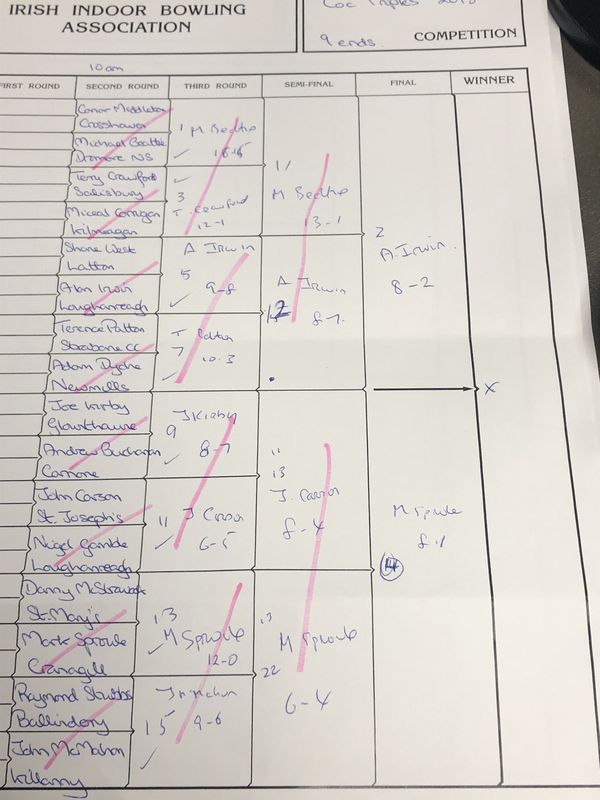 IRISH INDOOR BOWLING
ASSOCIATION
CoC Triples
9 ends.
COMPETITION
10am
FIRST ROUND
SECOND ROUND
THIRD ROUND
SEMI-FINAL
FINAL
WINNER
Conor Middleton
Crosshaven
Michael Beattie
Dromore NS
Terry Crawford
Salisbury
Miceal Corrigan
Kilmeagan
Shane West
Latton
Alan Irwin
Loughanreagh
Terence Patton
Strabane CC
Adam Dyche
Newmills
Joe Kirby
Glounthaune
Andrew Buchanan
Camone
John Carson
St. Joseph's
Nigel Gamble
Loughanreagh
Danny McStravick
St. Mary's
Mark Sproule
Cranagill
Raymond Stubbs
Ballinderry
John McMahon
Killanny
1 M
3
T. Crawford
12-1
A Irwin
5
9-8
T
7
10-3
J Kirby
9
8-7
11 J Carson
6-5
13
M Sproule
12-0
15 9-6
11
M
13-1
A Irwin
12 8-7
11
13
J. Carson
8-4
13
M Sproule
22
6-4
2
A. Irwin.
8-2
M Sproule
8-1
14
X